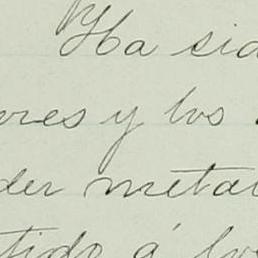 Ha sid
res y los
der metal
tido á los